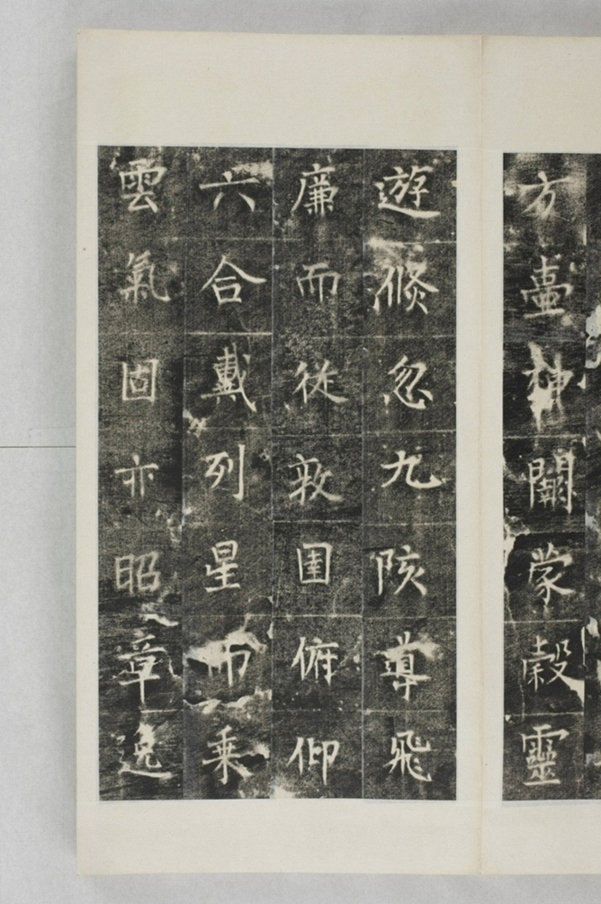 方壷神闕蒙穀靈
遊倏忽九陔導飛
廉而從敦圄俯仰
六合戴列星而乘
雲氣固亦昭章逸